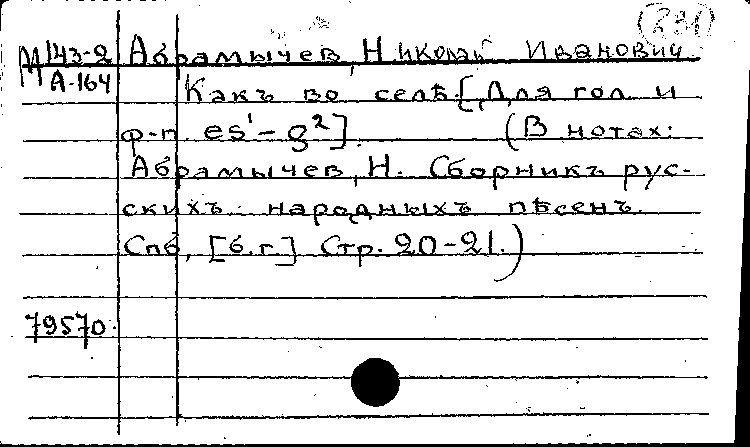 (231)
М 143-2 Абрамычев, Николай Иванович.
А-164 Какъ во селѣ. [Для гол. и
ф-п. es¹-g²] (В нотах:
Абрамычев, Н. Сборникъ рус-
скихъ народныхъ пѣсенъ.
Спб, [б.г.] Стр. 20-21.)
79570.